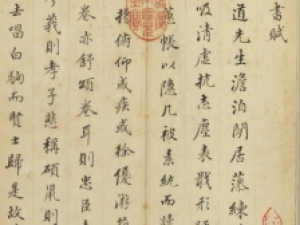 書賦
道先生澹泊閒居藻練
吸清虛抗志塵表戢形
帳以隱几被素紈而讀
揚俯仰或疾或徐優游
卷亦舒頌卷耳則忠臣
莪則孝子悲稱碩鼠則
去唱白駒而賢士歸是故